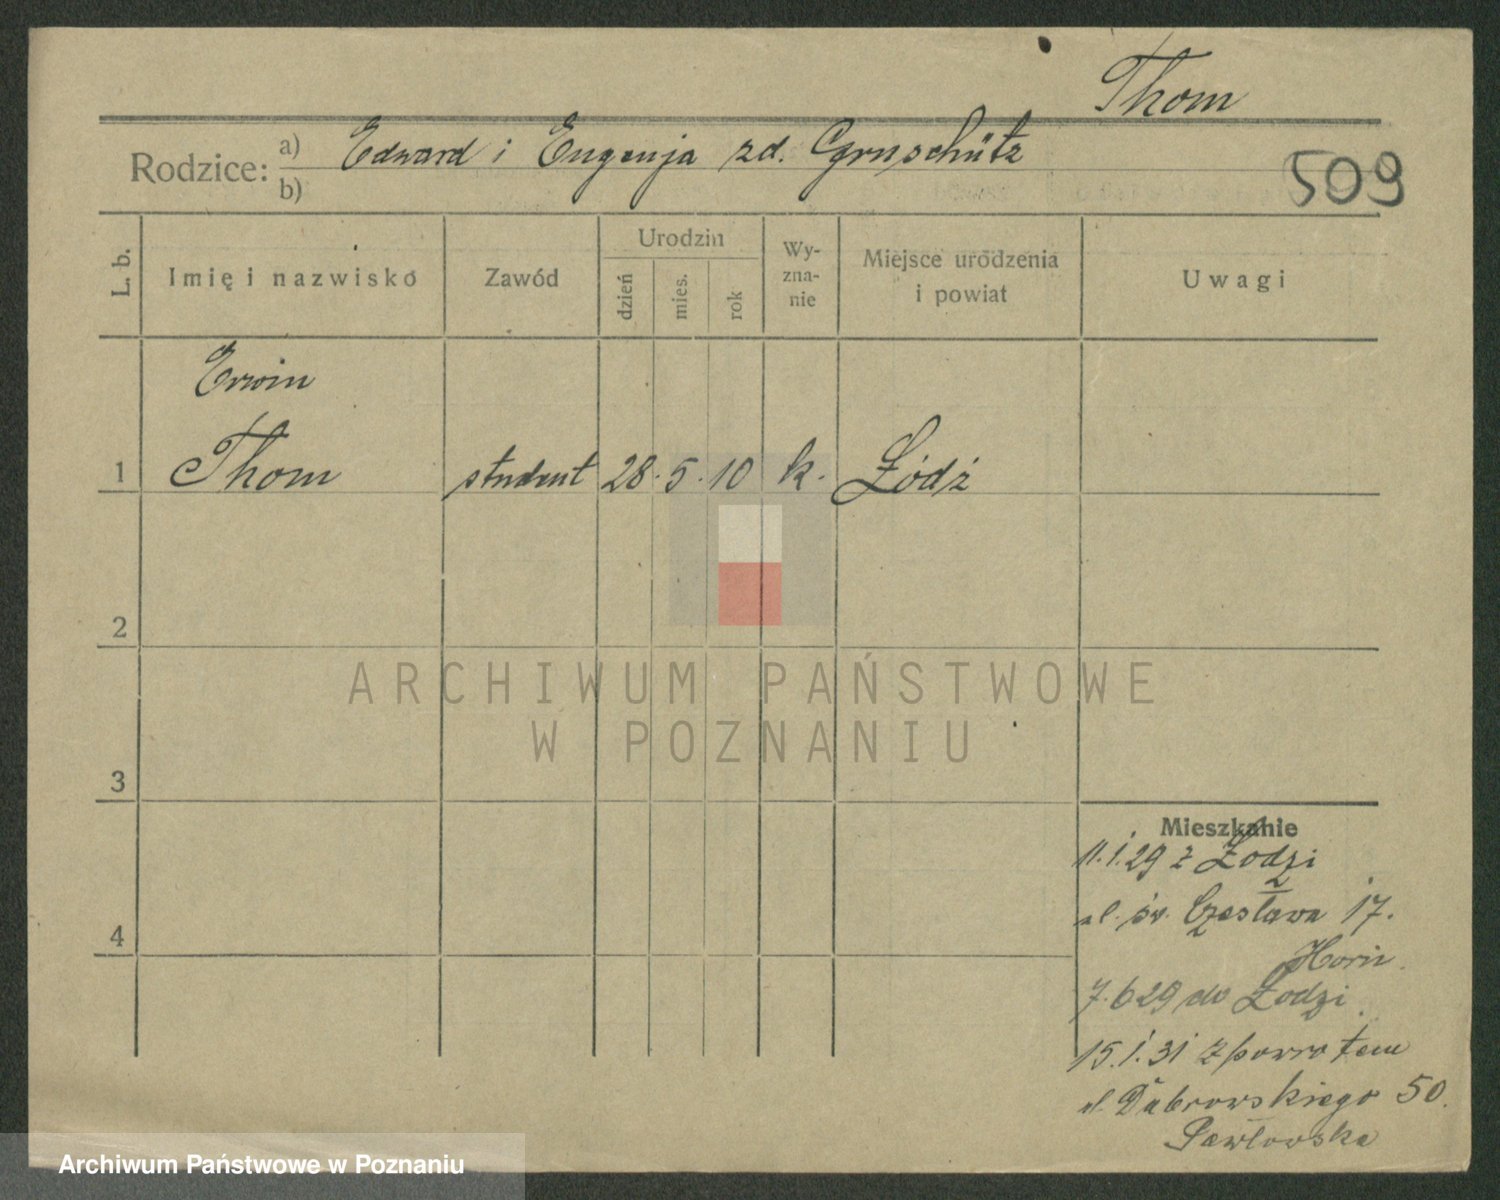 Thom
Rodzice: a) Edward i Eugenja zd. Gruschütz
b)
509
L. b.
Imię i nazwisko
Zawód
Urodzin
dzień
mies.
rok
Wy-
zna-
nie
Miejsce urodzenia
i powiat
Uwagi
Erwin
1 Thom student 28. 5. 10 k. Łódź
2
3
4
ARCHIWUM PAŃSTWOWE
W POZNANIU
Mieszkanie
11.1.29 z Łodzi
ul. św. Czesława 17.
7.6 29 do Łodzi
15.1.31 z powrotem
ul. Dąbrowskiego 50.
Pawłowska
Archiwum Państwowe w Poznaniu